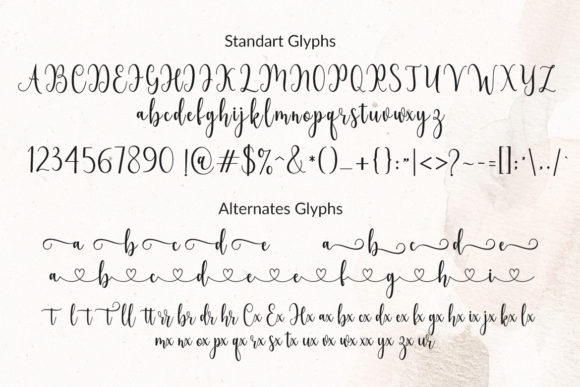 Standart Glyphs
ABCDEFGHIJKLMNOPQRSTUVWXYZ
abcdefghijklmnopqrstuvwxyz
1234567890 !@#$%^&*()_+{}:"|<>?~-=[];'\,./`
Alternates Glyphs
a b c d e a b c d e
a b c d e e f g h i
t l t t ll tt rr br dr hr Cx Ex Hx ax bx cx dx ex fx gx hx ix jx kx lx
mx nx ox px qx rx sx tx ux vx wx xx yx zx ur